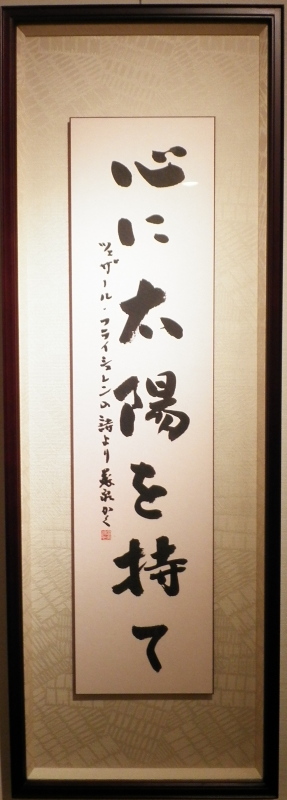 心に太陽を持て
ツェザール・フライシュレンの詩より かく